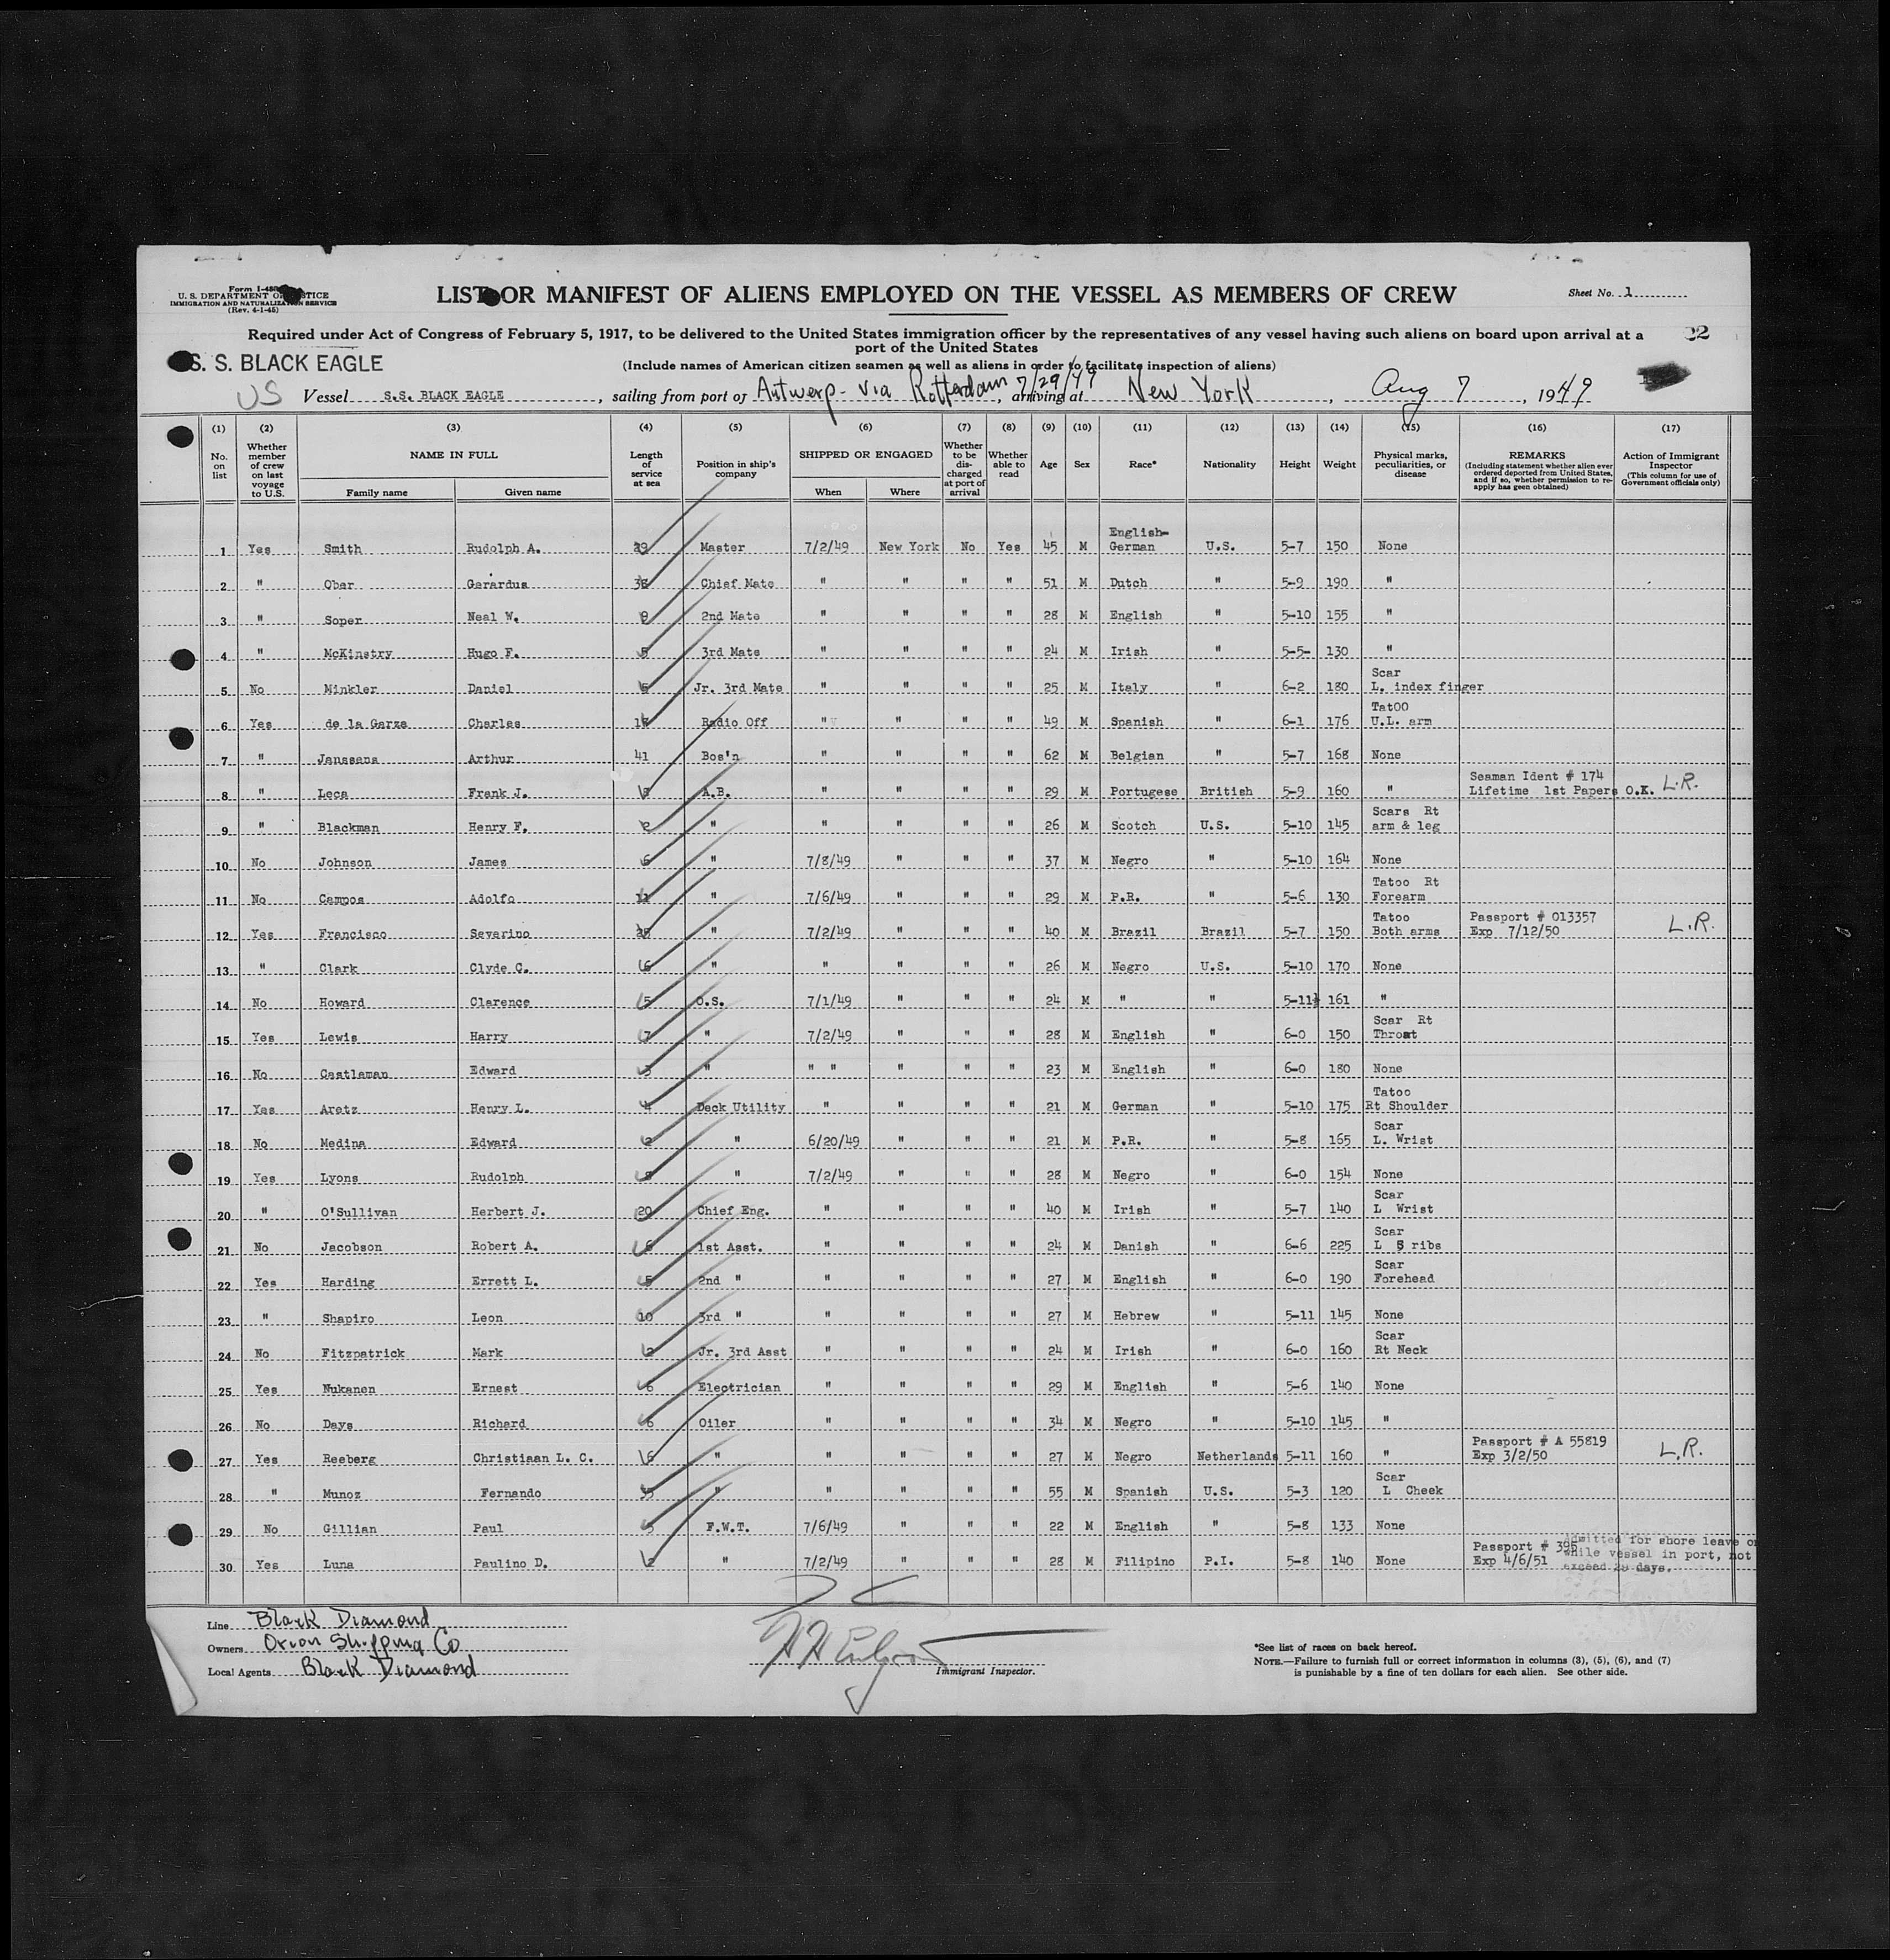 Form I-48
U. S. DEPARTMENT OF JUSTICE
IMMIGRATION AND NATURALIZATION SERVICE
(Rev. 4-1-45)
LIST OR MANIFEST OF ALIENS EMPLOYED ON THE VESSEL AS MEMBERS OF CREW
Sheet No. 1
Required under Act of Congress of February 5, 1917, to be delivered to the United States immigration officer by the representatives of any vessel having such aliens on board upon arrival at a
port of the United States
22
S. S. BLACK EAGLE
(Include names of American citizen seamen as well as aliens in order to facilitate inspection of aliens)
US Vessel S.S. BLACK EAGLE, sailing from port of Antwerp - via Rotterdam 7/29/49, arriving at New York, Aug 7, 1949
(1) No. on list
(2) Whether member of crew on last voyage to U.S.
(3) NAME IN FULL Family name Given name
(4) Length of service at sea
(5) Position in ship's company
(6) SHIPPED OR ENGAGED When Where
(7) Whether to be discharged at port of arrival
(8) Whether able to read
(9) Age
(10) Sex
(11) Race*
(12) Nationality
(13) Height
(14) Weight
(15) Physical marks, peculiarities, or disease
(16) REMARKS (Including statement whether alien ever ordered deported from United States, and if so, whether permission to reapply has geen obtained)
(17) Action of Immigrant Inspector (This column for use of Government officials only)
1 Yes Smith Rudolph A. 29 Master 7/2/49 New York No Yes 45 M English-German U.S. 5-7 150 None
2 " Ober Gerardus 38 Chief Mate " " " " 51 M Dutch " 5-9 190 "
3 " Soper Neal W. 9 2nd Mate " " " " 28 M English " 5-10 155 "
4 " McKinstry Hugo F. 5 3rd Mate " " " " 24 M Irish " 5-5- 130 "
5 No Minkler Daniel 6 Jr. 3rd Mate " " " " 25 M Italy " 6-2 180 Scar L. index finger
6 Yes de la Garza Charles Radio Off " " " " 49 M Spanish " 6-1 176 TatOO U.L. arm
7 " Janssens Arthur 41 Bos'n " " " " 62 M Belgian " 5-7 168 None
8 " Leca Frank J. A.B. " " " " 29 M Portugese British 5-9 160 " Seaman Ident # 174 Lifetime 1st Papers O.K. L.R.
9 " Blackman Henry F. 2 " " " " " 26 M Scotch U.S. 5-10 145 Scars Rt arm & leg
10 No Johnson James 6 " 7/8/49 " " " 37 M Negro " 5-10 164 None
11 No Campos Adolfo 11 " 7/6/49 " " " 29 M P.R. " 5-6 130 Tatoo Rt Forearm
12 Yes Francisco Severino 25 " 7/2/49 " " " 40 M Brazil Brazil 5-7 150 Tatoo Both arms Passport # 013357 Exp 7/12/50 L.R.
13 " Clark Clyde C. 6 " " " " " 26 M Negro U.S. 5-10 170 None
14 No Howard Clarence 5 O.S. 7/1/49 " " " 24 M " " 5-11½ 161 "
15 Yes Lewis Harry 7 " 7/2/49 " " " 28 M English " 6-0 150 Scar Rt Throat
16 No Castleman Edward 3 " " " " " " 23 M English " 6-0 180 None
17 Yes Aretz Henry L. 4 Deck Utility " " " " 21 M German " 5-10 175 Tatoo Rt Shoulder
18 No Medina Edward 2 " 6/20/49 " " " 21 M P.R. " 5-8 165 Scar L. Wrist
19 Yes Lyons Rudolph 8 " 7/2/49 " " " 28 M Negro " 6-0 154 None
20 " O'Sullivan Herbert J. 20 Chief Eng. " " " " 40 M Irish " 5-7 140 Scar L Wrist
21 No Jacobson Robert A. 6 1st Asst. " " " " 24 M Danish " 6-6 225 Scar L 5 ribs
22 Yes Harding Errett L. 5 2nd " " " " " 27 M English " 6-0 190 Scar Forehead
23 " Shapiro Leon 10 3rd " " " " " 27 M Hebrew " 5-11 145 None
24 No Fitzpatrick Mark 2 Jr. 3rd Asst " " " " 24 M Irish " 6-0 160 Scar Rt Neck
25 Yes Nukanen Ernest 6 Electrician " " " " 29 M English " 5-6 140 None
26 No Days Richard 6 Oiler " " " " 34 M Negro " 5-10 145 "
27 Yes Reeberg Christiaan L. C. 6 " " " " " 27 M Negro Netherlands 5-11 160 " Passport # A 55819 Exp 3/2/50 L.R.
28 " Munoz Fernando 35 " " " " " 55 M Spanish U.S. 5-3 120 Scar L Cheek
29 No Gillian Paul 5 F.W.T. 7/6/49 " " " 22 M English " 5-8 133 None
30 Yes Luna Paulino D. 2 " 7/2/49 " " " 28 M Filipino P.I. 5-8 140 None Passport # 395 Exp 4/6/51 Admitted for shore leave while vessel in port, not exceed 29 days.
Line Black Diamond
Owners Orion Shipping Co
Local Agents Black Diamond
Immigrant Inspector.
*See list of races on back hereof.
NOTE.—Failure to furnish full or correct information in columns (3), (5), (6), and (7)
is punishable by a fine of ten dollars for each alien. See other side.